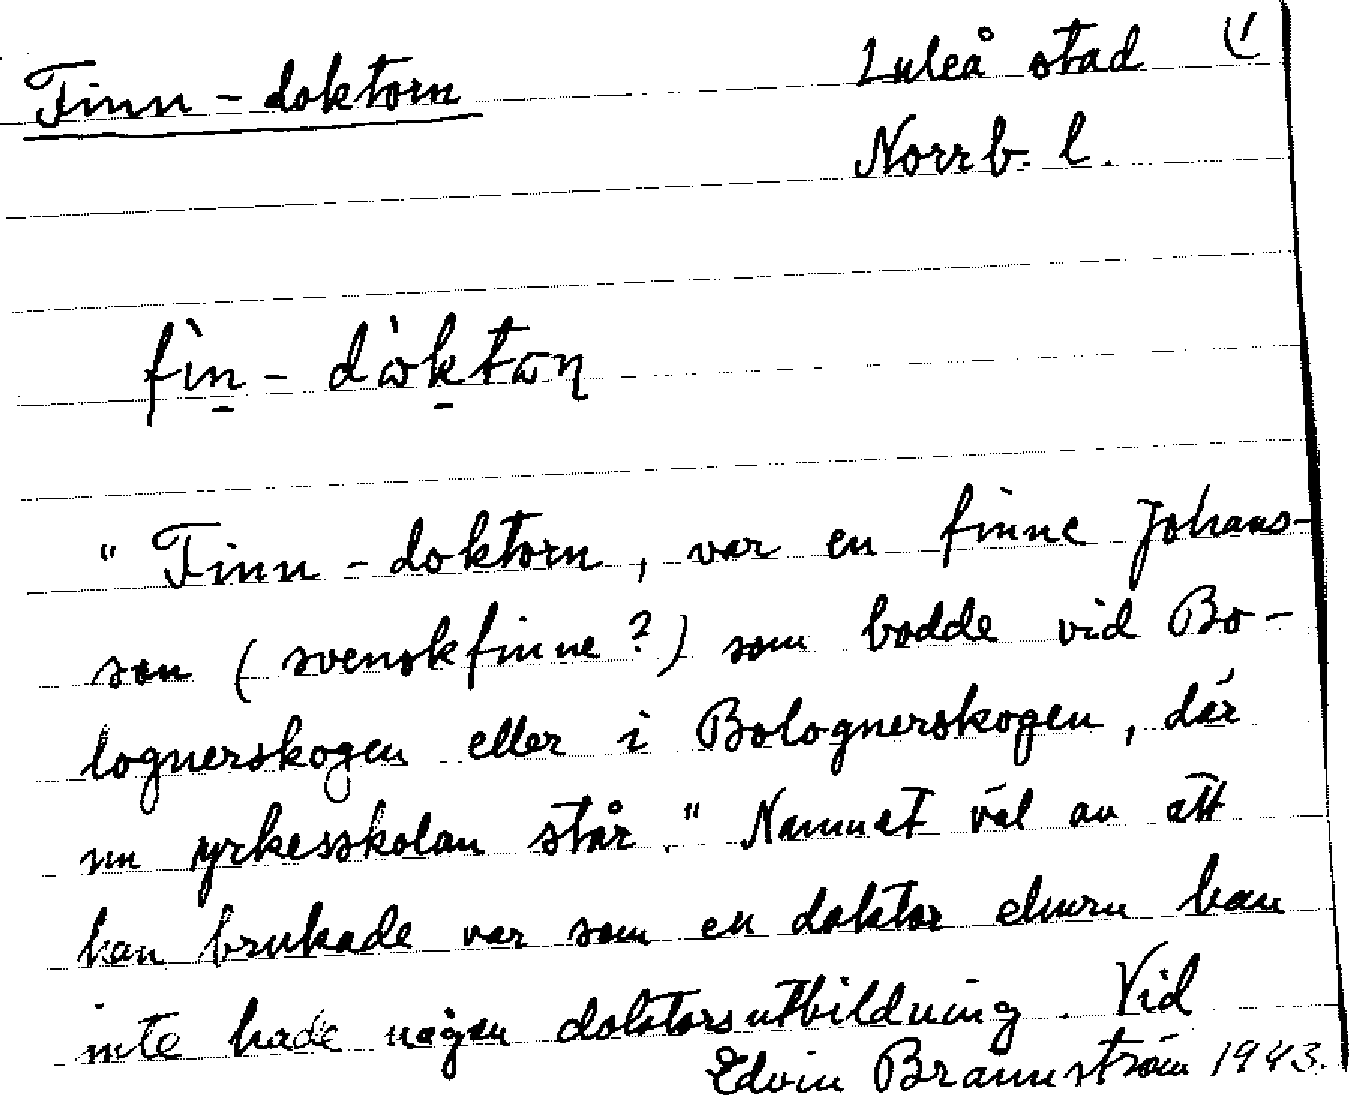 Finn-doktorn Luleå stad (1
Norrb. l.
"Finn-doktorn, var en finne Johans-
son (svenskfinne?) som bodde vid Bo-
lognerskogen eller i Bolognerskogen, där
nu yrkesskolan står." Namnet väl av att
han brukade var som en doktor ehuru han
inte hade någon doktorsutbildning. Vid
Edvin Brännström 1943.